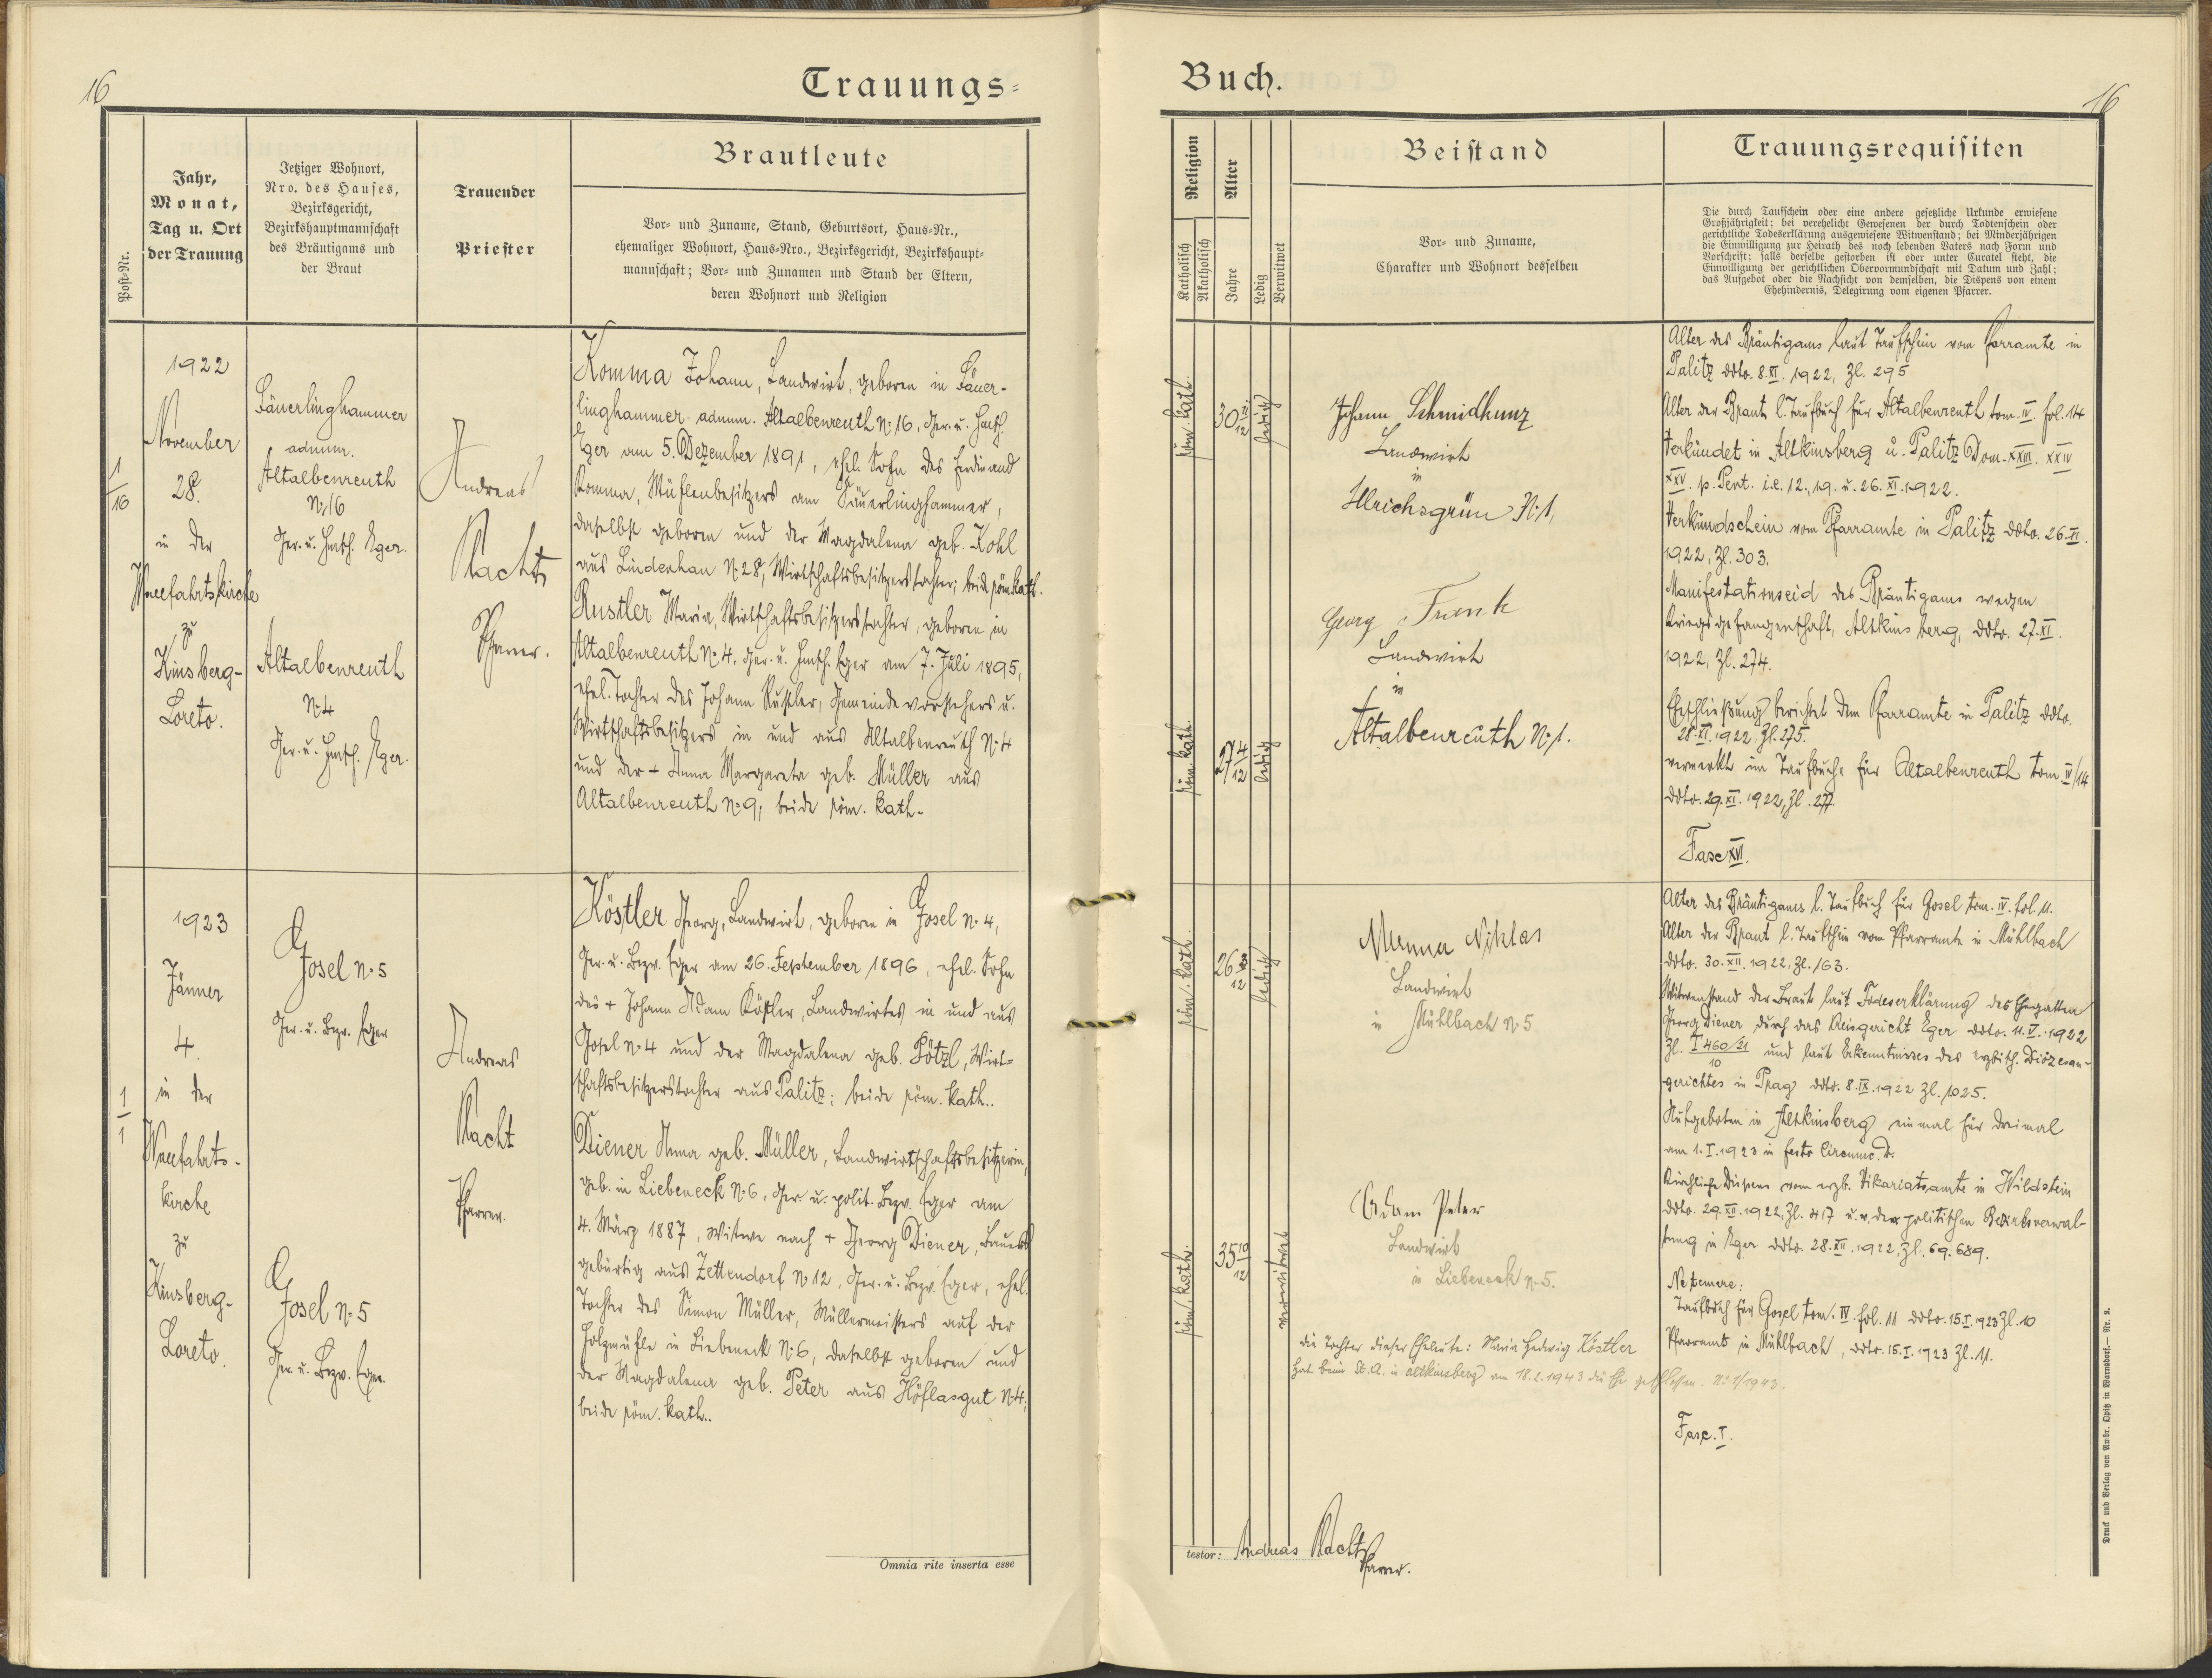 16
Trauungs=
Post-Nr.
Jahr,
Monat,
Tag u. Ort
der Trauung
Jetziger Wohnort,
Nro. des Hauses,
Bezirksgericht,
Bezirkshauptmannschaft
des Bräutigams und
der Braut
Trauender
Priester
Brautleute
Vor- und Zuname, Stand, Geburtsort, Haus-Nr.,
ehemaliger Wohnort, Haus-Nro., Bezirksgericht, Bezirkshaupt-
mannschaft; Vor- und Zunamen und Stand der Eltern,
deren Wohnort und Religion
1
16
1922
November
28.
in der
Wallfahrtskirche
zu
Kinsberg-
Loreto.
Säuerlinghammer
adnum.
Altalbenreuth
No 16
Ger. u. Hmsch. Eger.
Altalbenreuth
No 4
Ger. u. Hmsch. Eger.
Andreas
Macht
Pfarrer.
Komma Johann, Landwirt, geboren in Säuer-
linghammer adnum. Altalbenreuth No 16, Ger. u. Hmsch.
Eger am 5. Dezember 1891, ehel. Sohn des Ferdinand
Komma, Mühlenbesitzers am Säuerlinghammer,
daselbst geboren und der Magdalena geb. Kohl
aus Lindenhau No 28, Wirtschaftsbesitzerstochter; beide röm. kath.
Rustler Maria, Wirtschaftsbesitzerstochter, geboren in
Altalbenreuth No 4. Ger. u. Hmsch. Eger am 7. Juli 1895,
ehel. Tochter des Johann Rustler, Gemeindevorstehers u.
Wirtschaftsbesitzers in und aus Altalbenreuth No 4
und der + Anna Margareta geb. Müller aus
Altalbenreuth No 9; beide röm. kath.
1
1
1923
Jänner
4.
in der
Wallfahrts-
kirche
zu
Kinsberg-
Loreto.
Gosel No 5
Ger. u. Bezv. Eger
Gosel No 5
Ger. u. Bezv. Eger.
Andreas
Macht
Pfarrer.
Köstler Georg, Landwirt, geboren in Gosel No 4,
Ger. u. Bezv. Eger am 26. September 1896, ehel. Sohn
des + Johann Adam Köstler, Landwirtes in und aus
Gosel No 4 und der Magdalena geb. Pötzl, Wirt=
schaftsbesitzerstochter aus Palitz; beide röm. kath..
Diener Anna geb. Müller, Landwirtschaftsbesitzerin,
geb. in Liebeneck No 6, Ger. u. polit. Bezv. Eger am
4. März 1887, Witwe nach + Georg Diener, Bauers
gebürtig aus Zettendorf No 12, Ger. u. Bezv. Eger, ehel.
Tochter des Simon Müller, Müllermeisters auf der
Holzmühle in Liebeneck No 6, daselbst geboren und
der Magdalena geb. Peter aus Höflasgut No 4;
beide röm. kath..
Omnia rite inserta esse
Buch.
16
Religion
Katholisch
Akatholisch
Alter
Jahre
Ledig
Verwitwet
Beistand
Vor- und Zuname,
Charakter und Wohnort desselben
Trauungsrequisiten
Die durch Taufschein oder eine andere gesetzliche Urkunde erwiesene
Großjährigkeit; bei verehelicht Gewesenen der durch Todtenschein oder
gerichtliche Todeserklärung ausgewiesene Witwenstand; bei Minderjährigen
die Einwilligung zur Heirath des noch lebenden Vaters nach Form und
Vorschrift; falls derselbe gestorben ist oder unter Curatel steht, die
Einwilligung der gerichtlichen Obervormundschaft mit Datum und Zahl;
das Aufgebot oder die Nachsicht von demselben, die Dispens von einem
Ehehindernis, Delegirung vom eigenen Pfarrer.
röm. kath.
30 11/12
ledig
Johann Schmidkunz
Landwirt
in
Ulrichsgrün No 1,
röm. kath.
27 4/12
ledig
Georg Frank
Landwirt
in
Altalbenreuth No 1.
Alter des Bräutigams laut Taufschein vom Pfarramte in
Palitz ddto. 8. XI. 1922, Zl. 295
Alter der Braut l. Taufbuch für Altalbenreuth tom. IV. fol. 14
Verkündet in Altkinsberg u. Palitz Dom. XXIII. XXIV
XXV. p. Pent. i.e. 12., 19. u. 26. XI. 1922.
Verkündschein vom Pfarramte in Palitz ddto. 26. XI.
1922, Zl. 303.
Manifestationseid des Bräutigams wegen
Kriegsgefangenschaft, Altkinsberg, ddto. 27. XI.
1922, Zl. 274.
Eheschließung berichtet dem Pfarramte in Palitz ddto.
28. XI. 1922 Zl. 275.
vermerkt im Taufbuche für Altalbenreuth tom. IV/14
ddto. 29. XI. 1922, Zl. 277.
Fasc XVI.
röm. kath.
26 3/12
ledig
Menna Niklas
Landwirt
in Mühlbach No 5
röm. kath.
35 10/12
verwitwet
Adam Peter
Landwirt
in Liebeneck No 5.
Alter des Bräutigams l. Taufbuch für Gosel tom. IV. fol. 11.
Alter der Braut l. Taufschein vom Pfarramte in Mühlbach
ddto. 30. XII. 1922, Zl. 163.
Witwenstand der Braut laut Todeserklärung des Ehegatten
Georg Diener durch das Kreisgericht Eger ddto. 11. V. 1922
Zl. T 460/21
10
und laut Erkenntnisses des erzbisch. Diözesan-
gerichtes in Prag ddto. 8. IX. 1922 Zl. 1025.
Aufgeboten in Altkinsberg einmal für dreimal
am 1. I. 1923 in festo Circumc. D.
Kirchliche Dispens vom erzb. Vikariatsamte in Wildstein
ddto. 29. XII. 1922, Zl. 417 u. v. der politischen Bezirksverwal-
tung in Eger ddto. 28. XII. 1922, Zl. 69.689.
Ne temere:
Taufbuch für Gosel tom. IV. fol. 11 ddto. 15. I. 1923 Zl. 10
Pfarramt in Mühlbach, ddto. 15. I. 1923 Zl. 11.
die Tochter dieser Eheleute: Maria Hedwig Köstler
hat beim St. A. in Altkinsberg am 18.2.1943 die Ehe geschlossen. No 1/1943.
Fasc. I.
testor: Andreas Macht
Pfarrer.
Druck und Verlag von Ambr. Opitz in Warnsdorf. — Nr. 2.